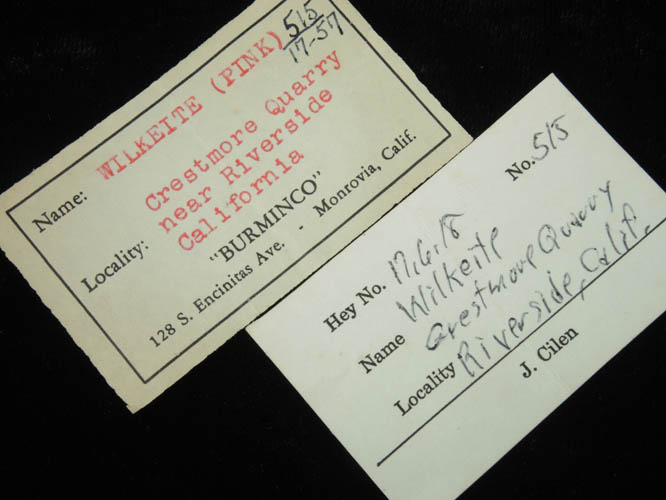 Name: WILKEITE (PINK) 515
17-57
Locality: Crestmore Quarry
near Riverside
California
"BURMINCO"
128 S. Encinitas Ave. - Monrovia, Calif.
No. 515
Hey No. 17.6.18
Name Wilkeite
Crestmore Quarry
Locality Riverside, Calif.
J. Cilen